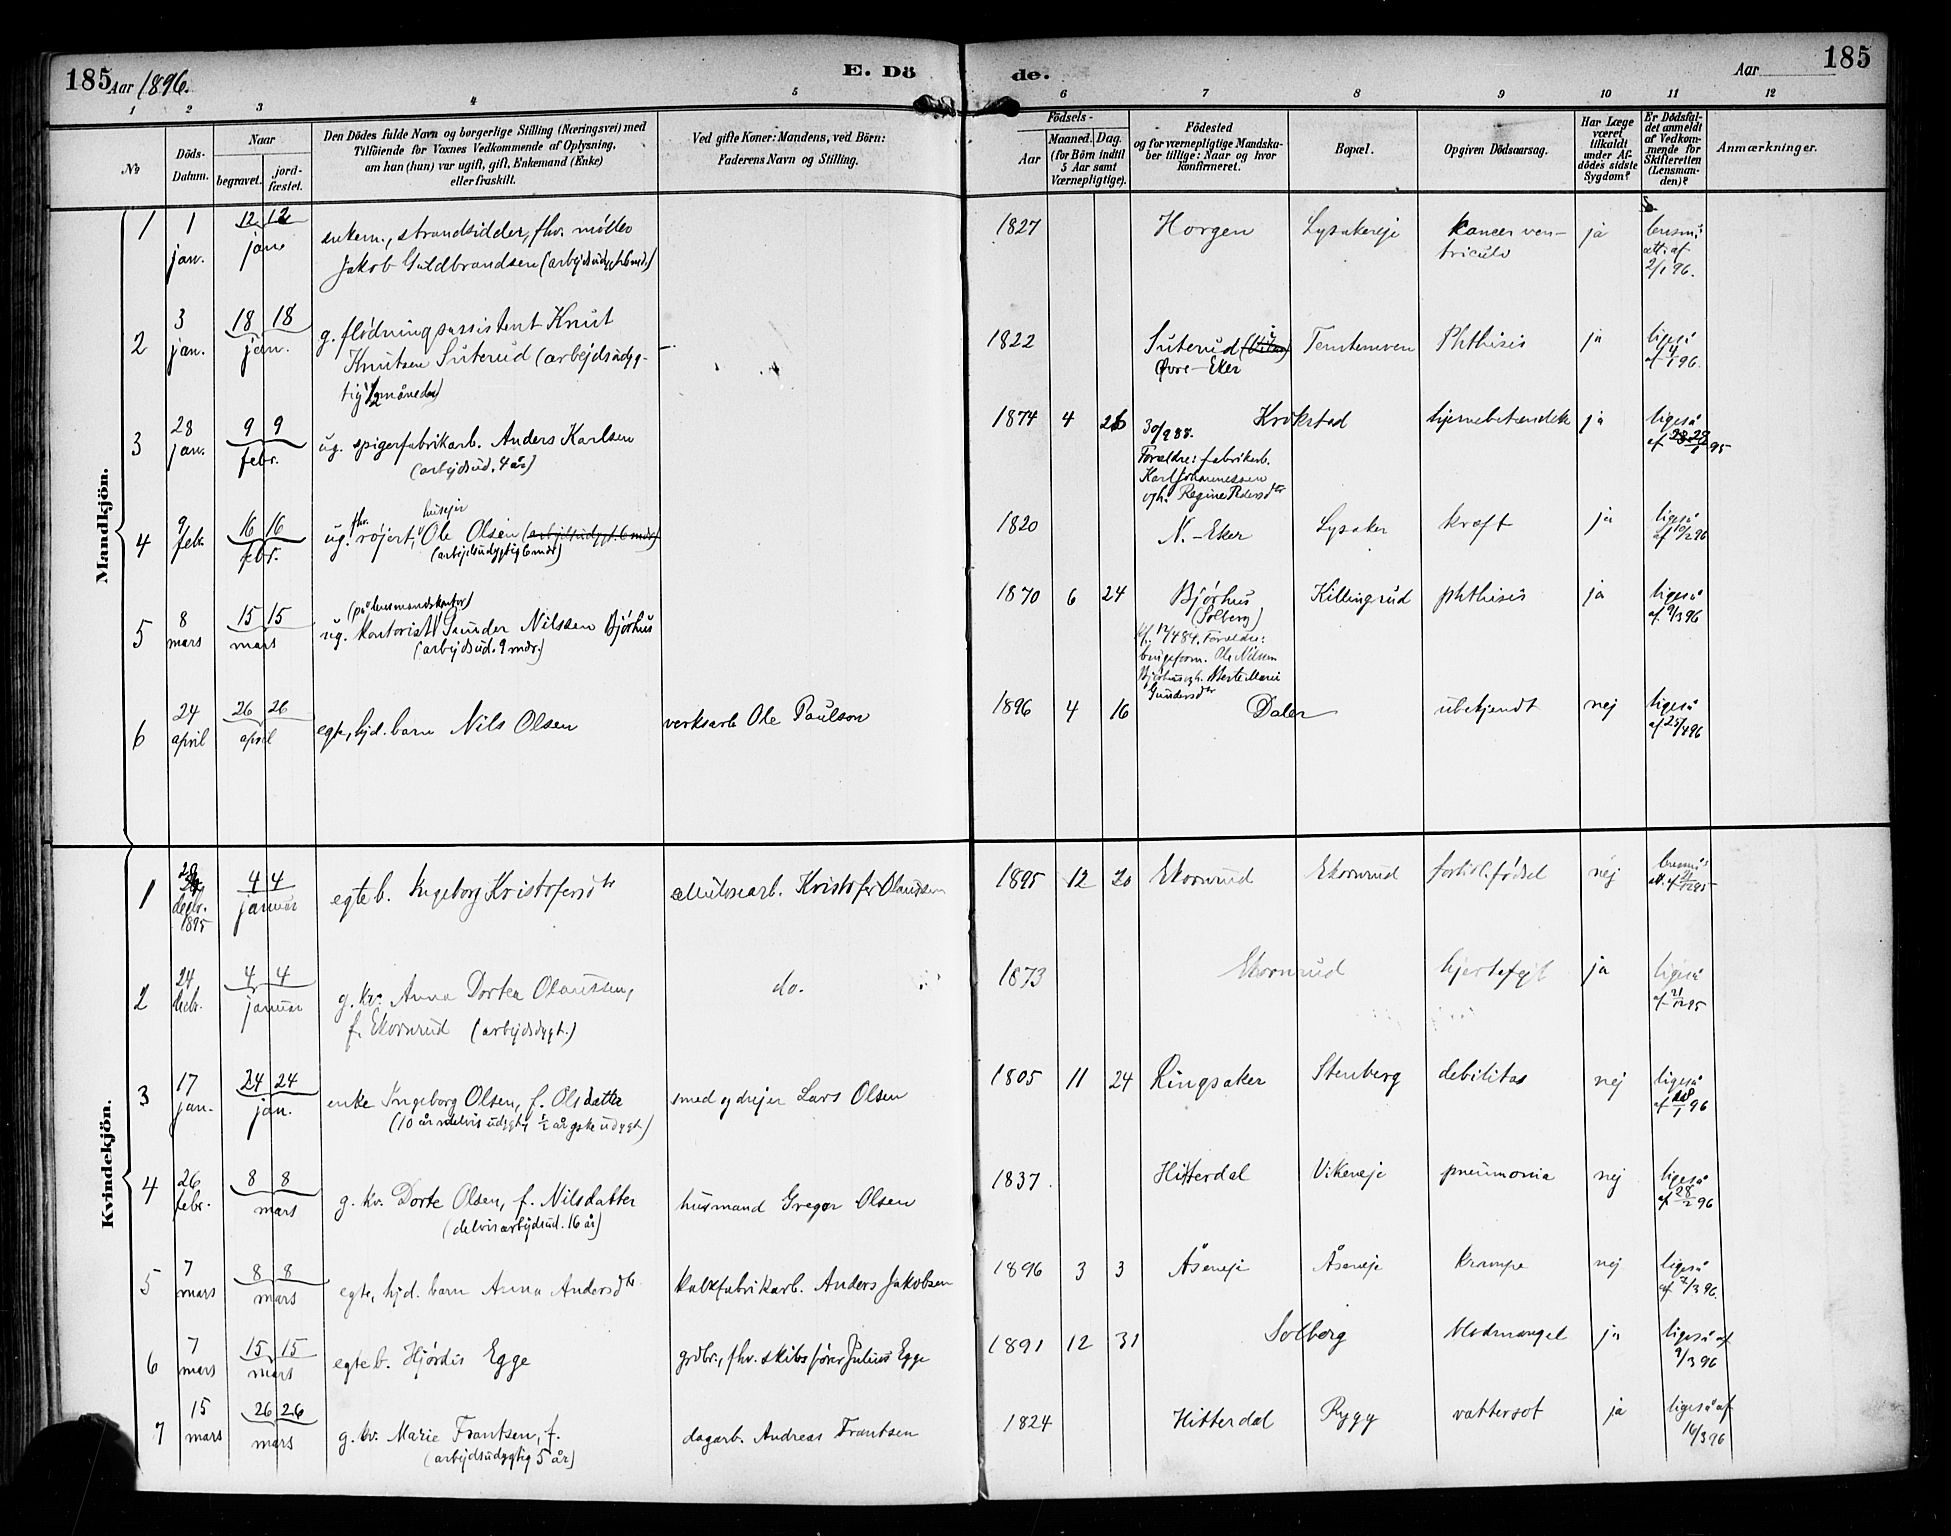 185 Aar 1896.
E. Dö
de.
Aar 185
1 2 3 4 5 6 7 8 9 10 11 12
No
Döds-
Datum.
Naar
begravet. jord-
fæstet.
Den Dödes fulde Navn og borgerlige Stilling (Næringsvei) med
Tilföiende for Voxnes Vedkommende af Oplysning,
om han (hun) var ugift, gift, Enkemand (Enke)
eller fraskilt.
Ved gifte Koner: Mandens, ved Börn:
Faderens Navn og Stilling.
Födsels-
Aar Maaned. Dag.
(for Börn indtil
5 Aar samt
Værnepligtige).
Födested
og for værnepligtige Mandska-
ber tillige: Naar og hvor
konfirmeret.
Bopæl.
Opgiven Dödsaarsag.
Har Læge
været
tilkaldt
under Af-
dödes sidste
Sygdom?
Er Dödsfal-
det anmeldt
af Vedkom-
mende for
Skifteretten
(Lensman-
den)?
Anmærkninger.
Mandkjön.
1 1 jan. 12 12 jan.
enkem., strandsidder, fhv. møller
Jakob Guldbrandsen (arbejdsudygt. 6 md.)
1827 Horgen Lysakereje kancer ven-
triculo
ja lensm.s
att. af
2/1 96.
2 3 jan. 18 18 jan.
g. flødningsassistent Knut
Knutsen Suterud (arbejdsudyg-
tig 1/2 måneder)
1822 Suterud i
Øvre-Eker
Phthisis ja ligeså
af 4/1 96.
3 28 jan. 9 9 febr.
ug. spigerfabrikarb. Anders Karlsen
(arbejdsud. 4 år)
1874 4 26 30/9 88.
Forældre: fabrikarb.
Karl Johannessen
og h. Regine Pedersdtr
Krokstad hjernebetændelse ja ligeså
af 29/1 95
4 9 febr. 16 16 febr.
fhv. husejer
ug. røjert, Ole Olsen (arbejdsudygt. 6 mdr)
(arbejdsudygtig 6 mdr)
1820 N.-Eker Lysaker kræft ja ligeså
af 10/2 96
5 8 mars 15 15 mars
(på lensmandskontor)
ug. kontorist Gunder Nilssen Bjørhus
(arbejdsud. 9 mdr.)
1870 6 24 Bjørhus
(Solberg)
12/4 84. Forældre:
brugsform. Ole Nilsen
Bjørhus og h. Berte Marie
Gundersdtr
Killingrud phthisis ja ligeså
af 9/3 96
6 24 april 26 26 april
egte, hjd. barn Nils Olsen verksarb Ole Paulson
1896 4 16 Daler ubekjendt nej ligeså
af 25/4 96
Kvindekjön.
1 decbr. 1895 4 4 januar
egte b. Ingeborg Kristofersdtr cellulosearb. Kristofer Olaussen
1895 12 20 Ekornrud Ekornrud fortidl. fødsel nej lensm.s
att. af 21/12 95
2 24 decbr. 4 4 januar
g. kv. Anna Dortea Olaussen,
f. Ekornrud (arbejdsdygt.)
do.
1873 Ekornrud hjertefejl ja ligeså
af 21/12 95
3 17 jan. 24 24 jan.
enke Ingeborg Olsen, f. Olsdatter
(10 år delvis udygt., 1/2 år gske udygt.)
smed og drejer Lars Olsen
1805 11 24 Ringsaker Stenberg debilitas nej ligeså
af 18/1 96
4 26 febr. 8 8 mars
g. kv. Dorte Olsen, f. Nilsdatter
(delvis arbejdsud. 16 år)
husmand Gregor Olsen
1837. Hitterdal Vikeneje pneumonia nej ligeså
af 28/2 96
5 7 mars 8 8 mars
egte, hjd. barn Anna Andersdtr kalkfabrikarb. Anders Jakobsen
1896 3 3 Åseneje Åseneje krampe nej ligeså
af 7/3 96.
6 7 mars 15 15 mars
egte b. Hjørdis Egge grdbr., fhv. skibsfører Julius Egge
1891 12 31 Solberg blodmangel ja ligeså af
9/3 96
7 15 mars 26 26 mars
g. kv. Marie Frantsen, f.
(arbejdsudygtig 5 år)
dagarb. Andreas Frantsen
1824 Hitterdal Rygg vattersot ja ligeså af
16/3 96